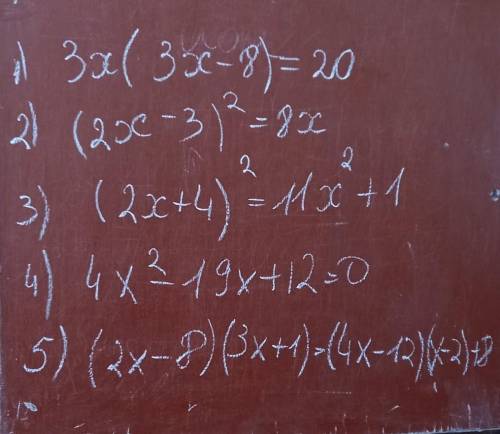 1) 3x(3x-8)=20
2) (2x-3)²=8x
3) (2x+4)²=11x²+1
4) 4x²-19x+12=0
5) (2x-8)(3x+1)=(4x-12)(x-2)+8